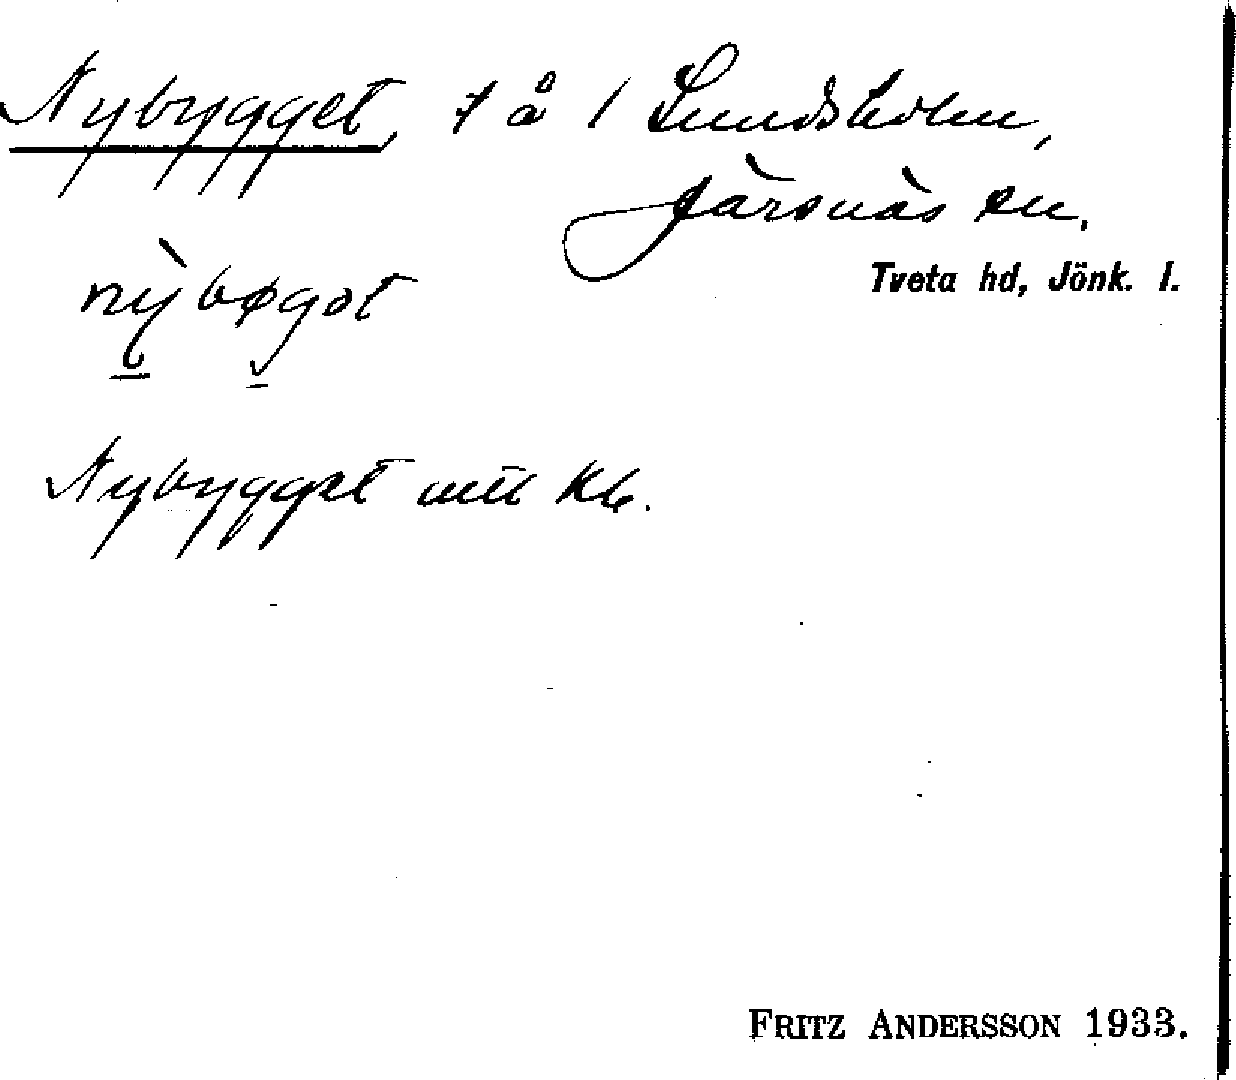 Nybygget, t å 1 Lundsholm,
Järsnäs sn.
Tveta hd, Jönk. l.
nỳbøgət
Nybygget utt Kb.
FRITZ ANDERSSON 1933.